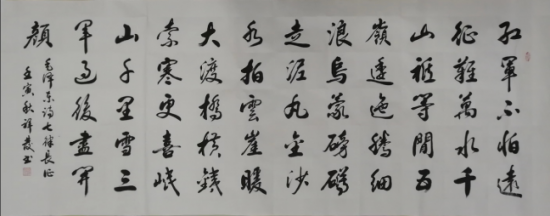 紅軍不怕遠
征難萬水千
山祗等間五
嶺逶迤騰細
浪烏蒙磅礴
走泥丸金沙
水拍雲崖暖
大渡橋横鐵
索寒更喜岷
山千里雪三
軍過後盡開
顏
毛澤東詩七律長征
壬寅秋祥書